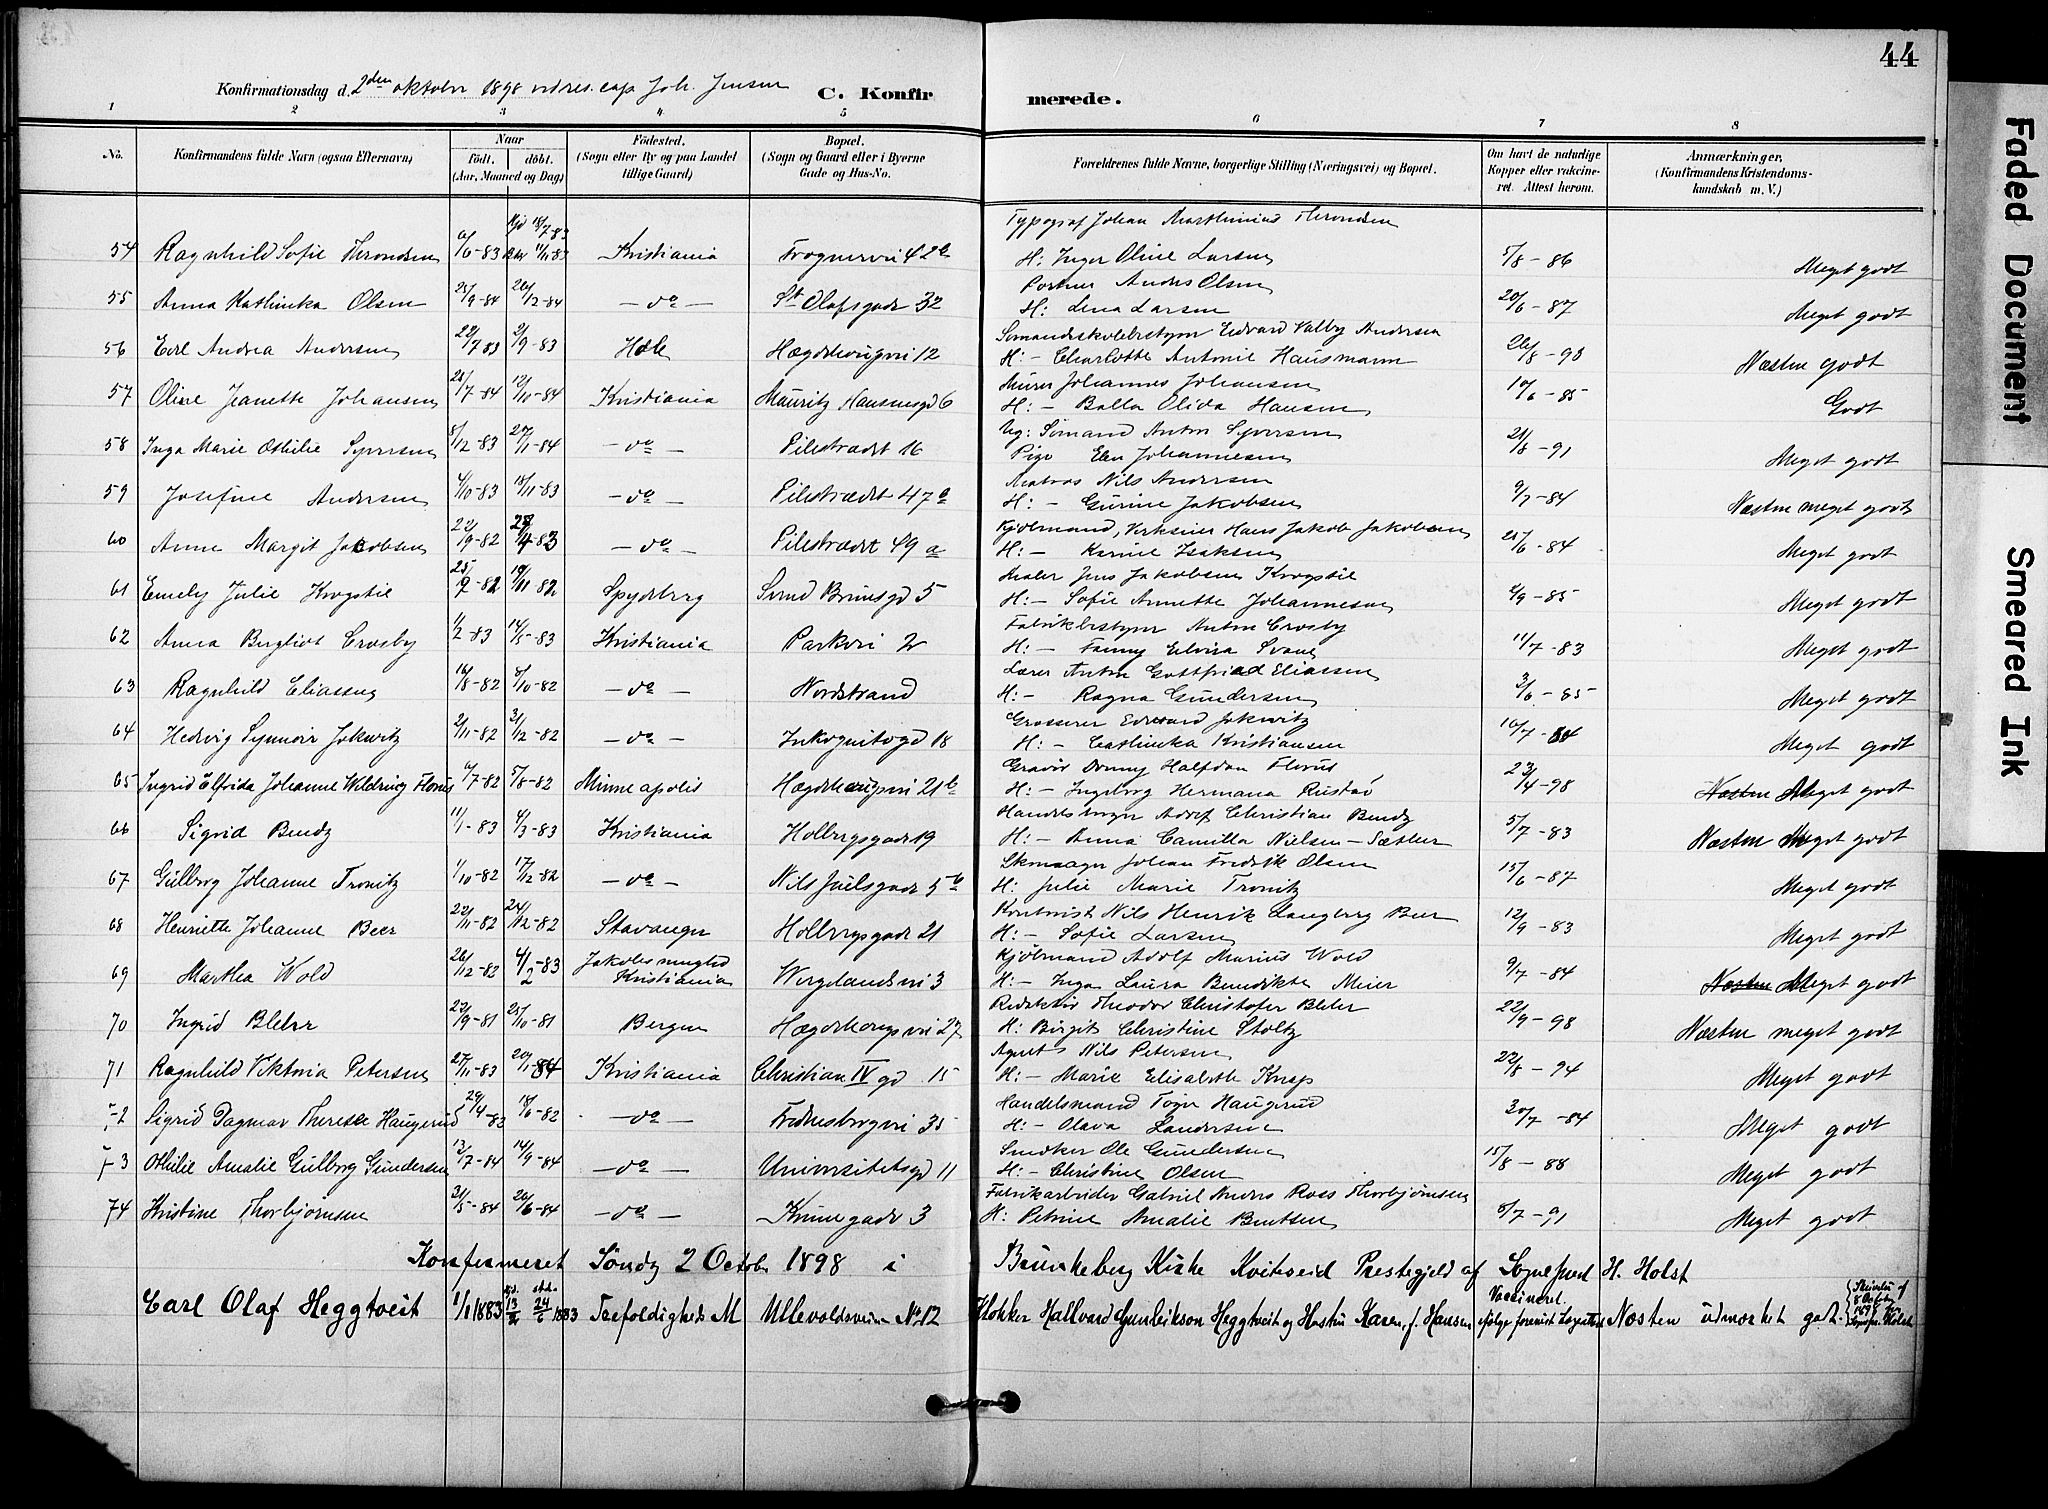 44
Konfirmationsdag d. 2den oktober 1898 ved res. cap. Joh. Jensen C. Konfirmerede.
1 2 3 4 5 6 7 8
No. Konfirmandens fulde Navn (ogsaa Efternavn) Naar födt. döbt. (Aar, Maaned og Dag) Födested. (Sogn eller By og paa Landet tillige Gaard) Bopæl. (Sogn og Gaard eller i Byerne Gade og Hus-No. Forældrenes fulde Navne, borgerlige Stilling (Næringsvei) og Bopæl. Om havt de naturlige Kopper eller vaccineret. Attest herom. Anmærkninger, (Konfirmandens Kristendomskundskab m. V.)
Typograf Johan Marthinius Throndsen
54 Ragnhild Sofie Throndsen 6/6-83 Hjd 18/7-83 11/11-83 Kristiania Frognervei 42b H: Inger Oline Larsen 5/8-86 Meget godt
Portner Anders Olsen
55 Anna Kathinka Olsen 25/9-84 26/12-84 - do - St Olafsgade 32 H: Lena Larsen 20/6-87 Meget godt
Sömandsskolebestyrer Edvard Valby Andersen
56 Andrea Andersen 22/7 83 2/9-83 Hægdehaugsvei 12 H:- Charlotte Antonie Hausmann 26/8-98 Næsten godt
Murer Johannes Johansen
57 Oline Jeanette Johansen 28/7-84 12/10-84 Kristiania Mauritz Hansensgd 6 H:- Balla Olida Hansen 10/6-85 Godt
Ug: Sömand Anton Syversen
58 Inga Marie Othilie Syversen 8/12-83 27/1-84 - do - Pilestrædet 16 Pige Elen Johannesen 21/8-91 Meget godt
Matros Nils Andersen
59 Josefine Andersen 4/10-83 18/11-83 - do - Pilestrædet 47a H:- Gurine Jakobsen 9/7-84 Næsten meget godt
Kjölmand, Hans Jakob Jakobsen
60 Anne Margit Jakobsen 22/9-82 -83 - do - Pilestrædet 49 a H:- Karine Isaksen 25/6-84 Meget godt
Maler Jens Jakobsen Krogstie
61 Emely Julie Krogstie 25/9-82 19/11-82 Spydeberg Svend Brunsgd 5 H:- Sofie Annette Johannesen 4/9-85 Meget godt
Fabrikbestyrer Anton Crosby
62 Anna Bergliot Crosby 1/2-83 14/5-83 Kristiania Parkvei 2 H:- Fanny Elvira Svane 11/7-83 Meget godt
Lærer Anton Gottfried Eliassen
63 Ragnhild Eliassen 16/8-82 8/10-82 - do - Nordstrand H:- Ragna Gundersen 3/6-85 Meget godt
Grosserer Edvard Jakwitz
64 Hedvig Synnöve Jakwitz 2/11-82 31/12-82 - do - Inkognitogd 18 H:- Cathinka Kristiansen 10/7-84 Meget godt
Gravör Halfdan
65 Ingrid Elfrida Johanne 6/7-82 5/8-82 Minneapolis Hægdehaugsvei 21b H:- Ingeborg Hermana Rustad 23/4-98 Næsten Meget godt
Adolf Christian Bendz
66 Sigrid Bendz 11/1-83 4/3-83 Kristiania Holbergsgade 19 H:- Anna Camilla Nielsen-Sæther 5/7-83 Næsten Meget godt
Skomager Johan Fredrik Olsen
67 Gulborg Johanne Tronitz 1/10-82 17/12-82 - do - Nils Juelsgade 5b H: Julie Marie Tronitz 15/6-87 Meget godt
Kontorist Nils Henrik Langberg Beer
68 Henriette Johanne Beer 22/11-82 24/12-82 Stavanger Holbergsgade 21 H:- Sofie Larsen 12/9-83 Meget godt
Kjölmand Adolf Marius Wold
69 Martha Wold 26/12-82 4/2-83 Jakobs menighed Kristiania Wergelandsvei 3 H:- Inga Laura Benedikte Meier 9/7-84 Næsten Meget godt
Redaktör Theodor Christofer Blehr
70 Ingrid Blehr 23/9-81 25/10-81 Bergen Hægdehaugsvei 27 H: Birgit Christine Stoltz 22/9-98 Næsten meget godt
Agent Nils Petersen
71 Ragnhild Viktoria Petersen 27/11-83 20/1-84 Kristiania Christian IV gd 15 H:- Marie Elisabeth Knap 22/8-94 Meget godt
Handelsmand Haugerud
72 Sigrid Dagmar Therese Haugerud 29/4-82 18/6-82 - do - Fredensborgvei 35 H:- Olava Landersen 30/7-84 Meget godt
Snedker Ole Gundersen
73 Othilie Amalie Gulborg Gundersen 13/7-84 14/9-84 - do - Universitetsgd 11 H:- Christine Olsen 15/8-88 Meget godt
Fabrikarbeider Gabriel Anders Roos Thorbjörnsen
74 Kristine Thorbjörnsen 31/5-84 26/6-84 - do - Krunegade 3 H: Petrine Amalie Bentsen 8/7-91 Meget godt
Konfirmeret Söndg 2 Octobr 1898 i Brunkeberg Kirke Kviteseid Prestegjeld af Sognepræst H. Holst
Carl Olaf Heggtveit 1/1 1883 24/6 1883 Trefoldigheds M Ullevoldsveien No 12 Klokker Hallvard Gunleikson Heggtveit og Hustru Karen, f. Hansen Vaccineret ifølge Næsten udmerket godt. 8 Octobr 1898 Holst
Faded Document
Smeared Ink